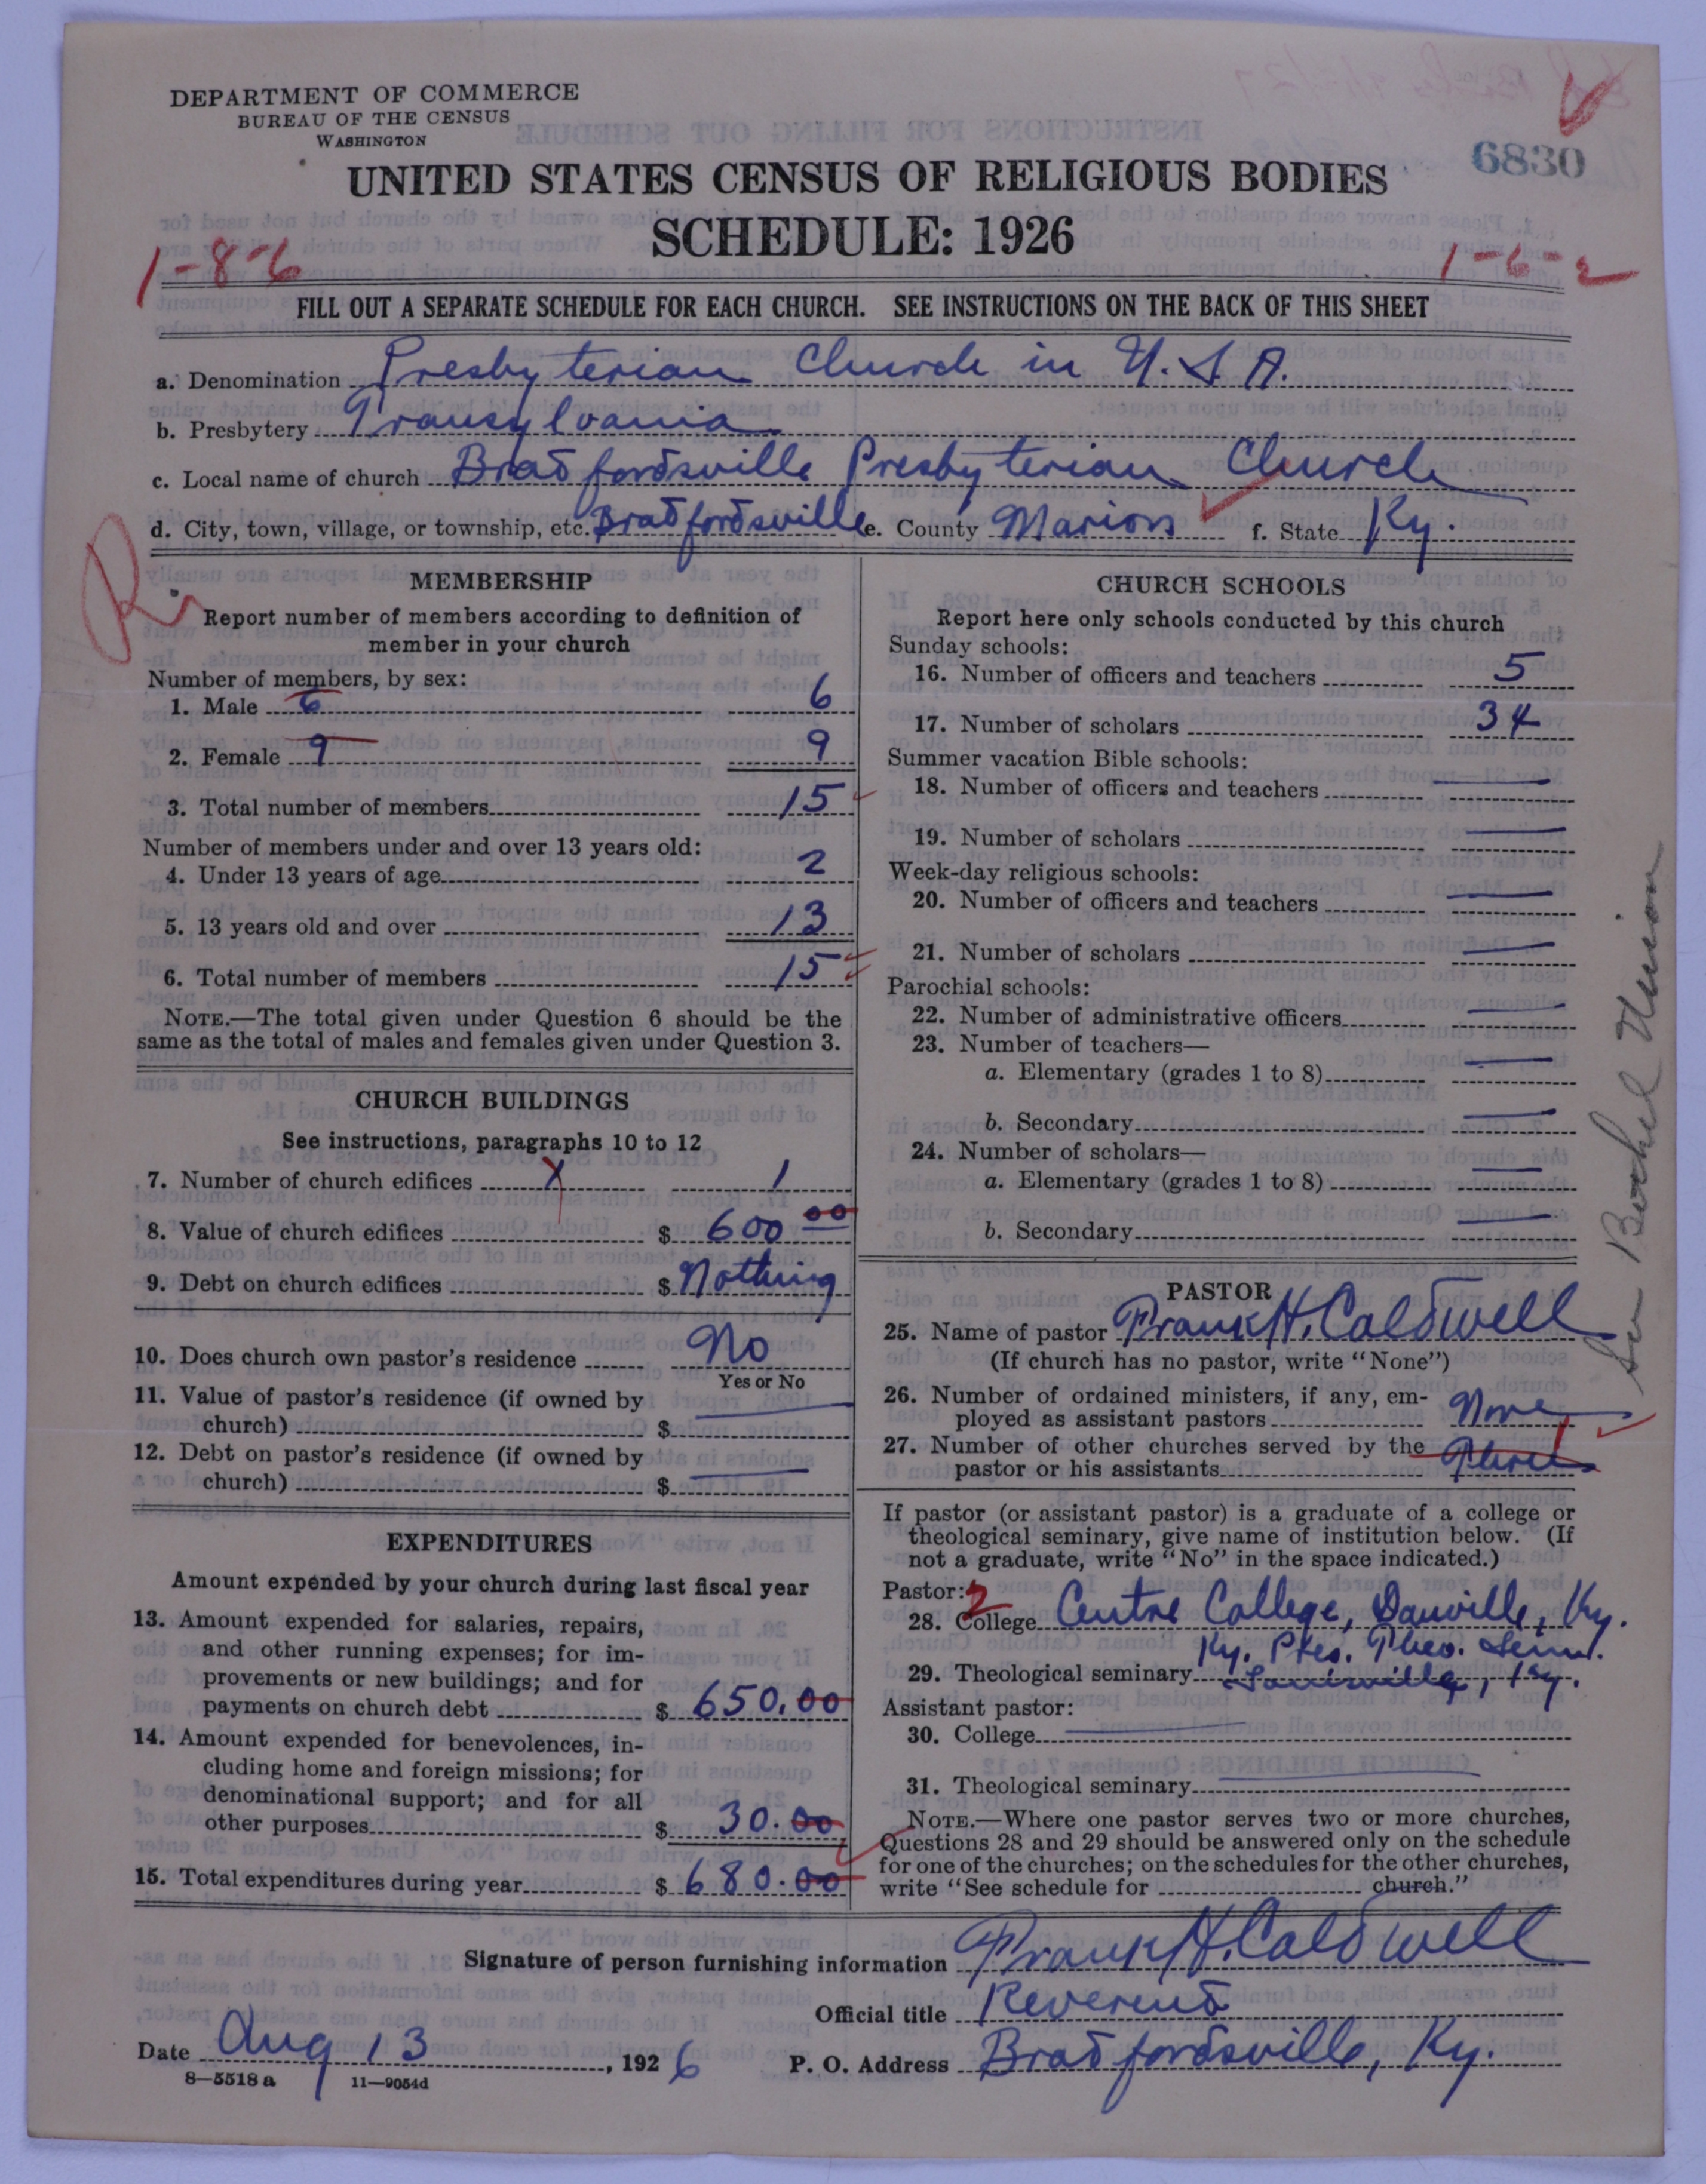 DEPARTMENT OF COMMERCE
BUREAU OF THE CENSUS
WASHINGTON
6830
UNITED STATES CENSUS OF RELIGIOUS BODIES
SCHEDULE: 1926
1-8-6
1-6-2
FILL OUT A SEPARATE SCHEDULE FOR EACH CHURCH. SEE INSTRUCTIONS ON THE BACK OF THIS SHEET
a. Denomination Presbyterian Church in U.S.A.
b. Presbytery Transylvania
c. Local name of church Bradfordsville Presbyterian Church
d. City, town, village, or township, etc. Bradfordsville e. County Marion f. State Ky.
MEMBERSHIP
Report number of members according to definition of
member in your church
Number of members, by sex:
1. Male 6 6
2. Female 9 9
3. Total number of members 15
Number of members under and over 13 years old:
4. Under 13 years of age 2
5. 13 years old and over 13
6. Total number of members 15
NOTE.—The total given under Question 6 should be the
same as the total of males and females given under Question 3.
CHURCH BUILDINGS
See instructions, paragraphs 10 to 12
7. Number of church edifices 1
8. Value of church edifices $ 600 00
9. Debt on church edifices $ Nothing
10. Does church own pastor's residence No
Yes or No
11. Value of pastor's residence (if owned by
church) $
12. Debt on pastor's residence (if owned by
church) $
EXPENDITURES
Amount expended by your church during last fiscal year
13. Amount expended for salaries, repairs,
and other running expenses; for im-
provements or new buildings; and for
payments on church debt $ 650.00
14. Amount expended for benevolences, in-
cluding home and foreign missions; for
denominational support; and for all
other purposes $ 30.00
15. Total expenditures during year $ 680.00
CHURCH SCHOOLS
Report here only schools conducted by this church
Sunday schools:
16. Number of officers and teachers 5
17. Number of scholars 34
Summer vacation Bible schools:
18. Number of officers and teachers
19. Number of scholars
Week-day religious schools:
20. Number of officers and teachers
21. Number of scholars
Parochial schools:
22. Number of administrative officers
23. Number of teachers—
a. Elementary (grades 1 to 8)
b. Secondary
24. Number of scholars—
a. Elementary (grades 1 to 8)
b. Secondary
PASTOR
25. Name of pastor Frank H. Caldwell
(If church has no pastor, write "None")
26. Number of ordained ministers, if any, em-
ployed as assistant pastors None
27. Number of other churches served by the
pastor or his assistants 1
If pastor (or assistant pastor) is a graduate of a college or
theological seminary, give name of institution below. (If
not a graduate, write "No" in the space indicated.)
Pastor: 2
28. College Centre College, Danville, Ky.
Ky. Pres. Theo. Sem.
29. Theological seminary Louisville, Ky.
Assistant pastor:
30. College
31. Theological seminary
NOTE.—Where one pastor serves two or more churches,
Questions 28 and 29 should be answered only on the schedule
for one of the churches; on the schedules for the other churches,
write "See schedule for church."
Union
Signature of person furnishing information Frank H. Caldwell
Official title Reverend
Date Aug 13, 1926 P. O. Address Bradfordsville, Ky.
8—5518 a 11—9054d